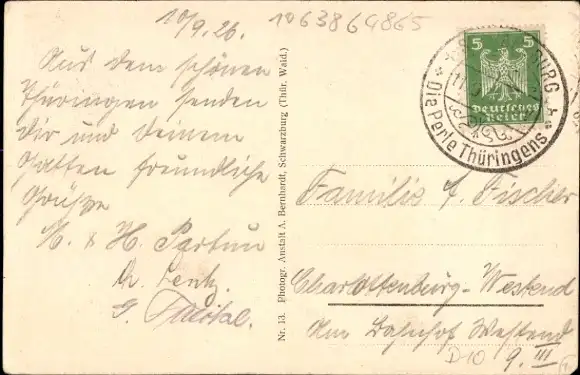 10/9.26.
1063864865
Aus dem schönen
Thüringen senden
Dir und Deinem
Gatten freundliche
Grüße
K. & H. Partun
Nr. 13. Photogr. Anstalt A. Bernhardt, Schwarzburg (Thür. Wald.)
5 5
Deutsches
Reich
BURG
Die Perle Thüringens
Familie A. Fischer
Charlottenburg-Westend
Am Bahnhof Westend
D-10 9. III